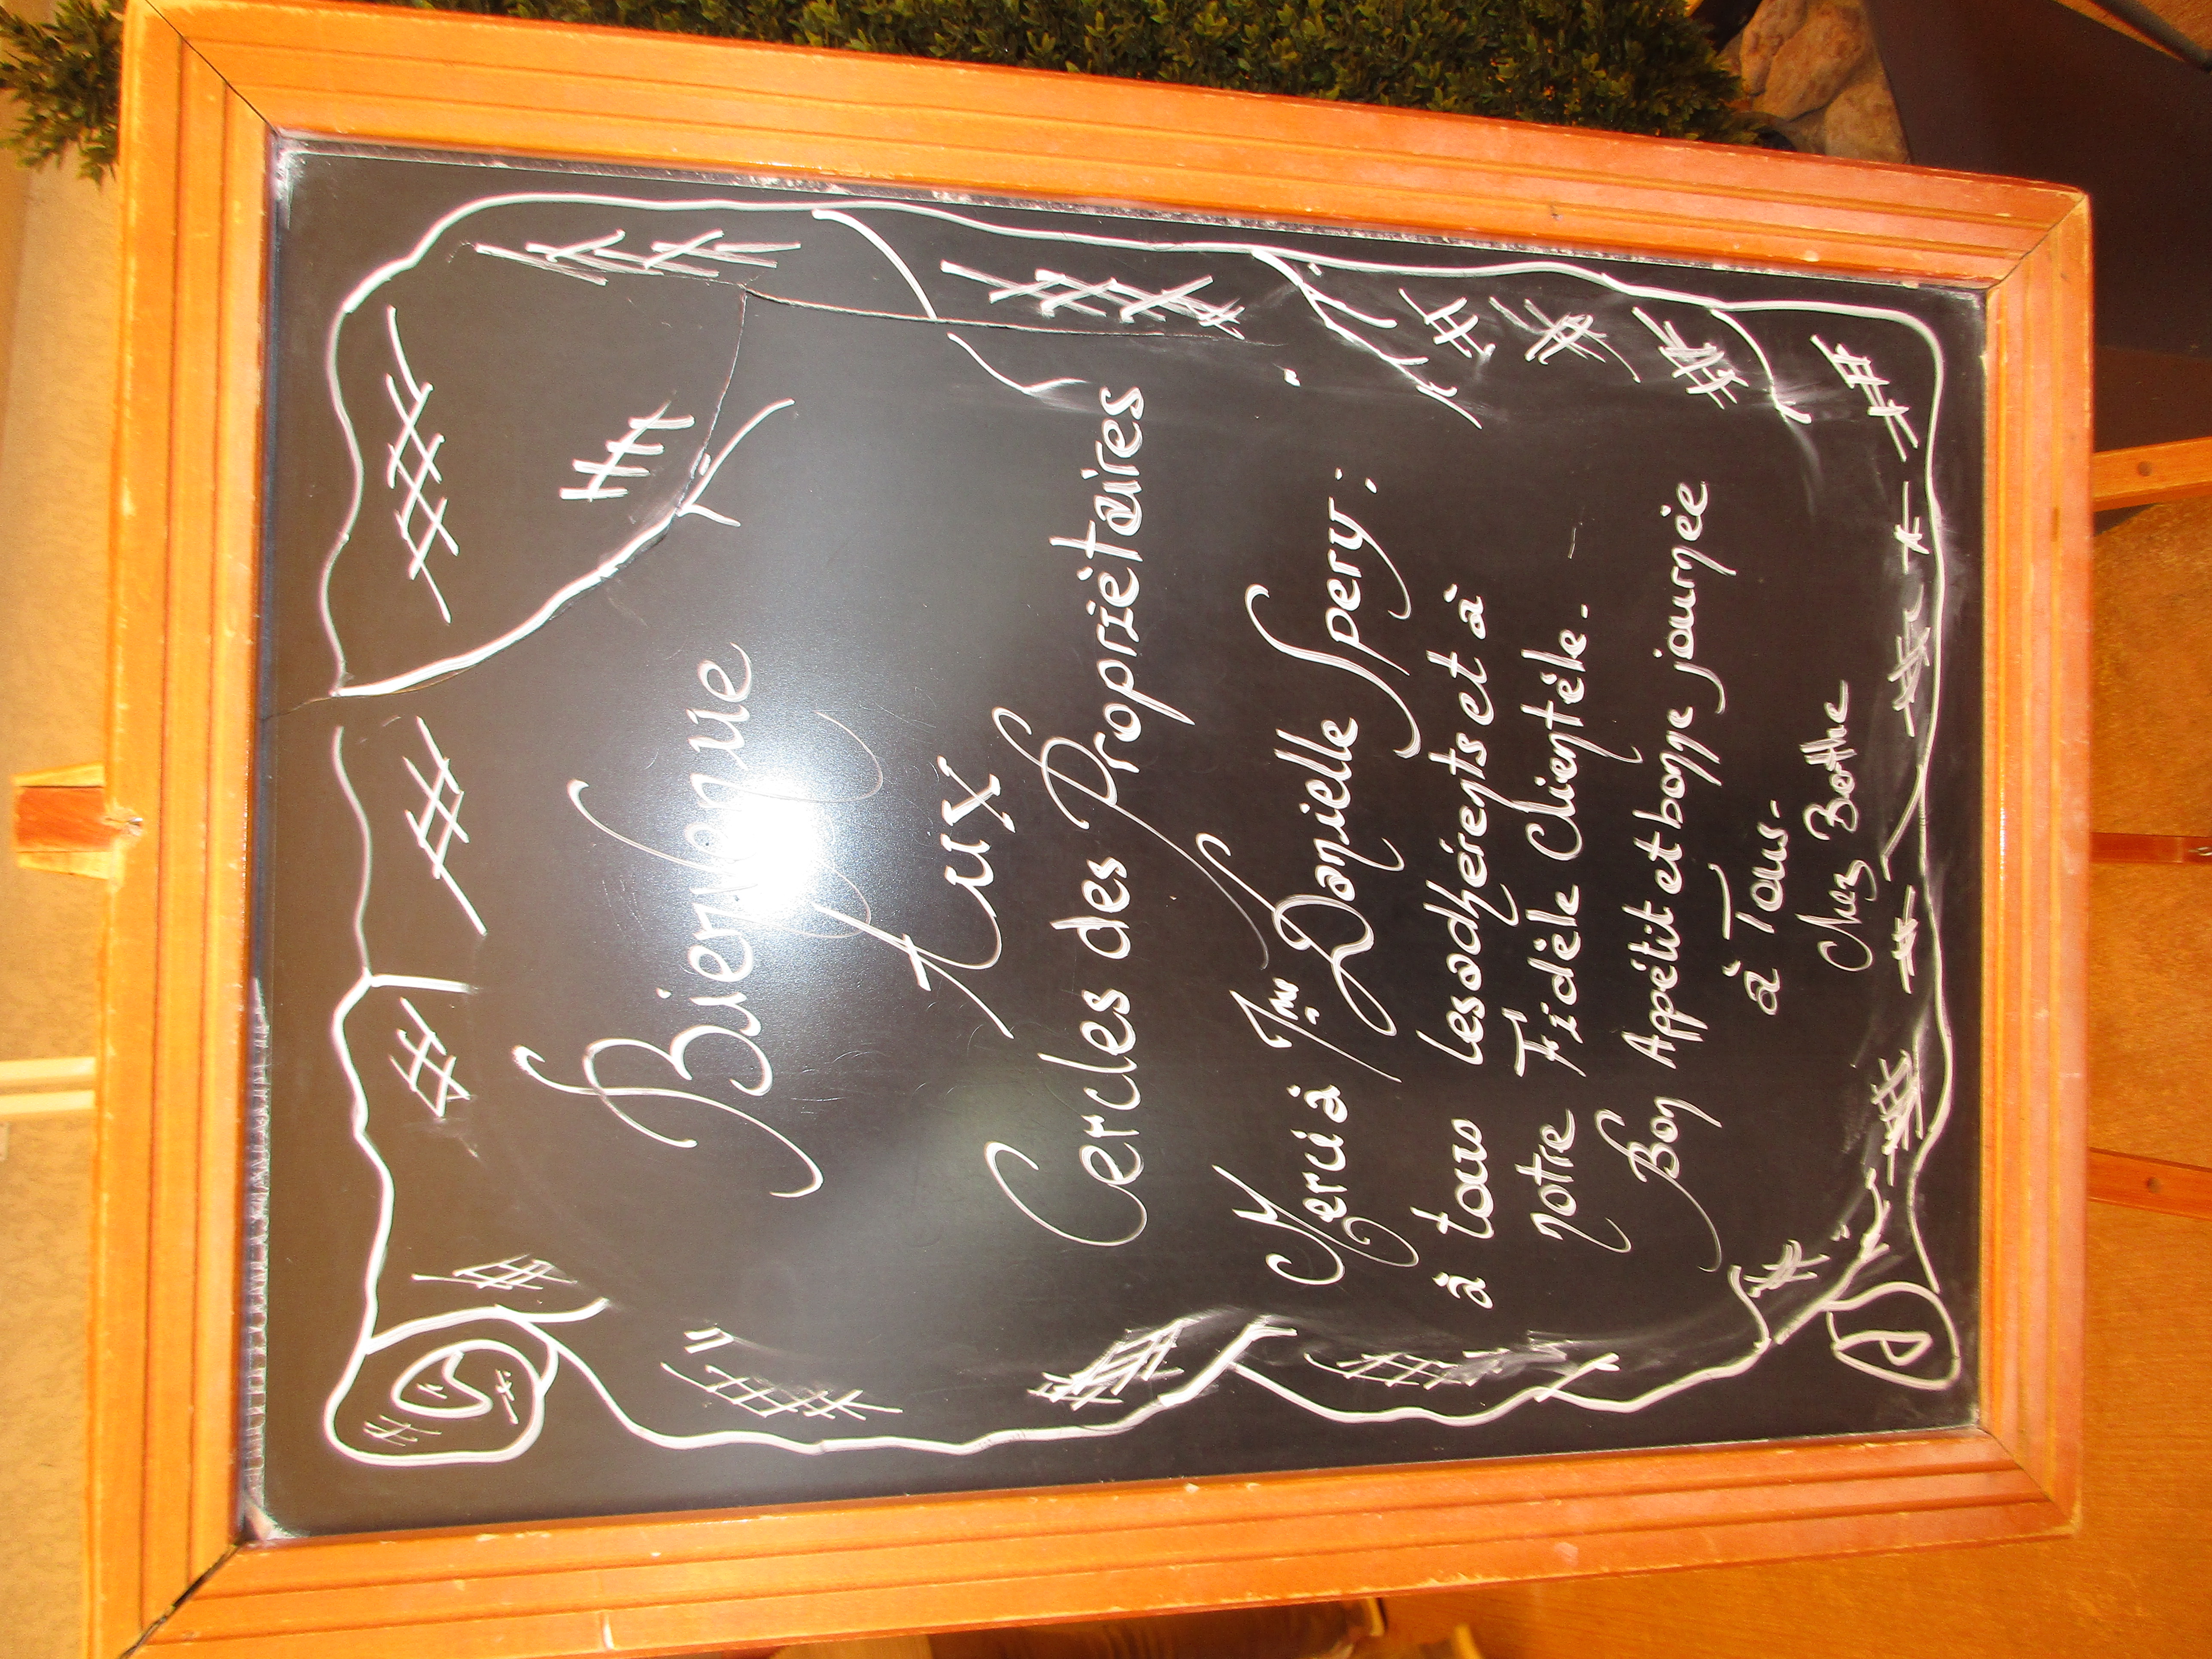 Bienvenue
Aux
Cercles des Propriètaires
Merci à Mme Danielle Spery :
à tous les adhérents et à
notre Fidèle Clientèle.
Bon Appétit et bonne journée
à Tous.
Chez Berthe